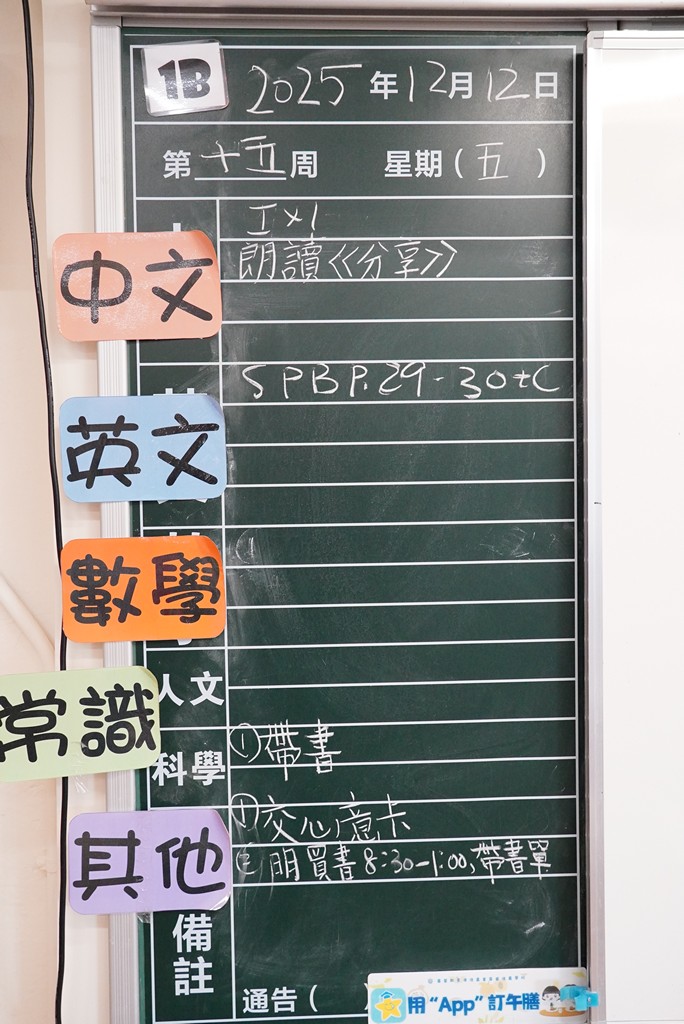 1B 2025年12月12日
第十五周 星期(五)
工×1
中文 朗讀《分享》
SPB P.29-30+C
英文
數學
人文
常識
科學 ①帶書
①交心意卡
其他 ②明買書8:30-1:00,帶書單
備註
通告(
用“App”訂午膳